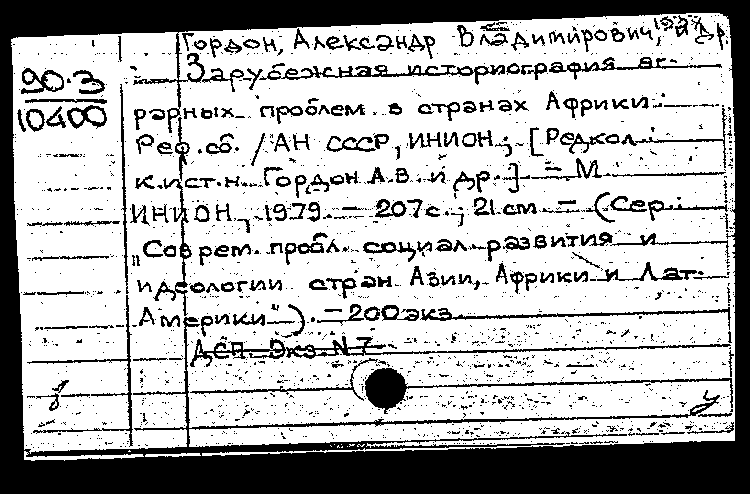 Гордон, Александр Владимирович, и др
90.3
10400
Зарубежная историография аг-
рарных проблем в странах Африки:
Реф. сб. / АН СССР, ИНИОН; [Редкол.:
к.ист.н. Гордон А.В. и др.] - М
ИНИОН, 1979. - 207с.; 21см. - (Сер.:
"Соврем. пробл. социал. развития и
идеологии стран Азии, Африки и Лат.
Америки"). - 200экз.
ДСП. Экз. N 7
у